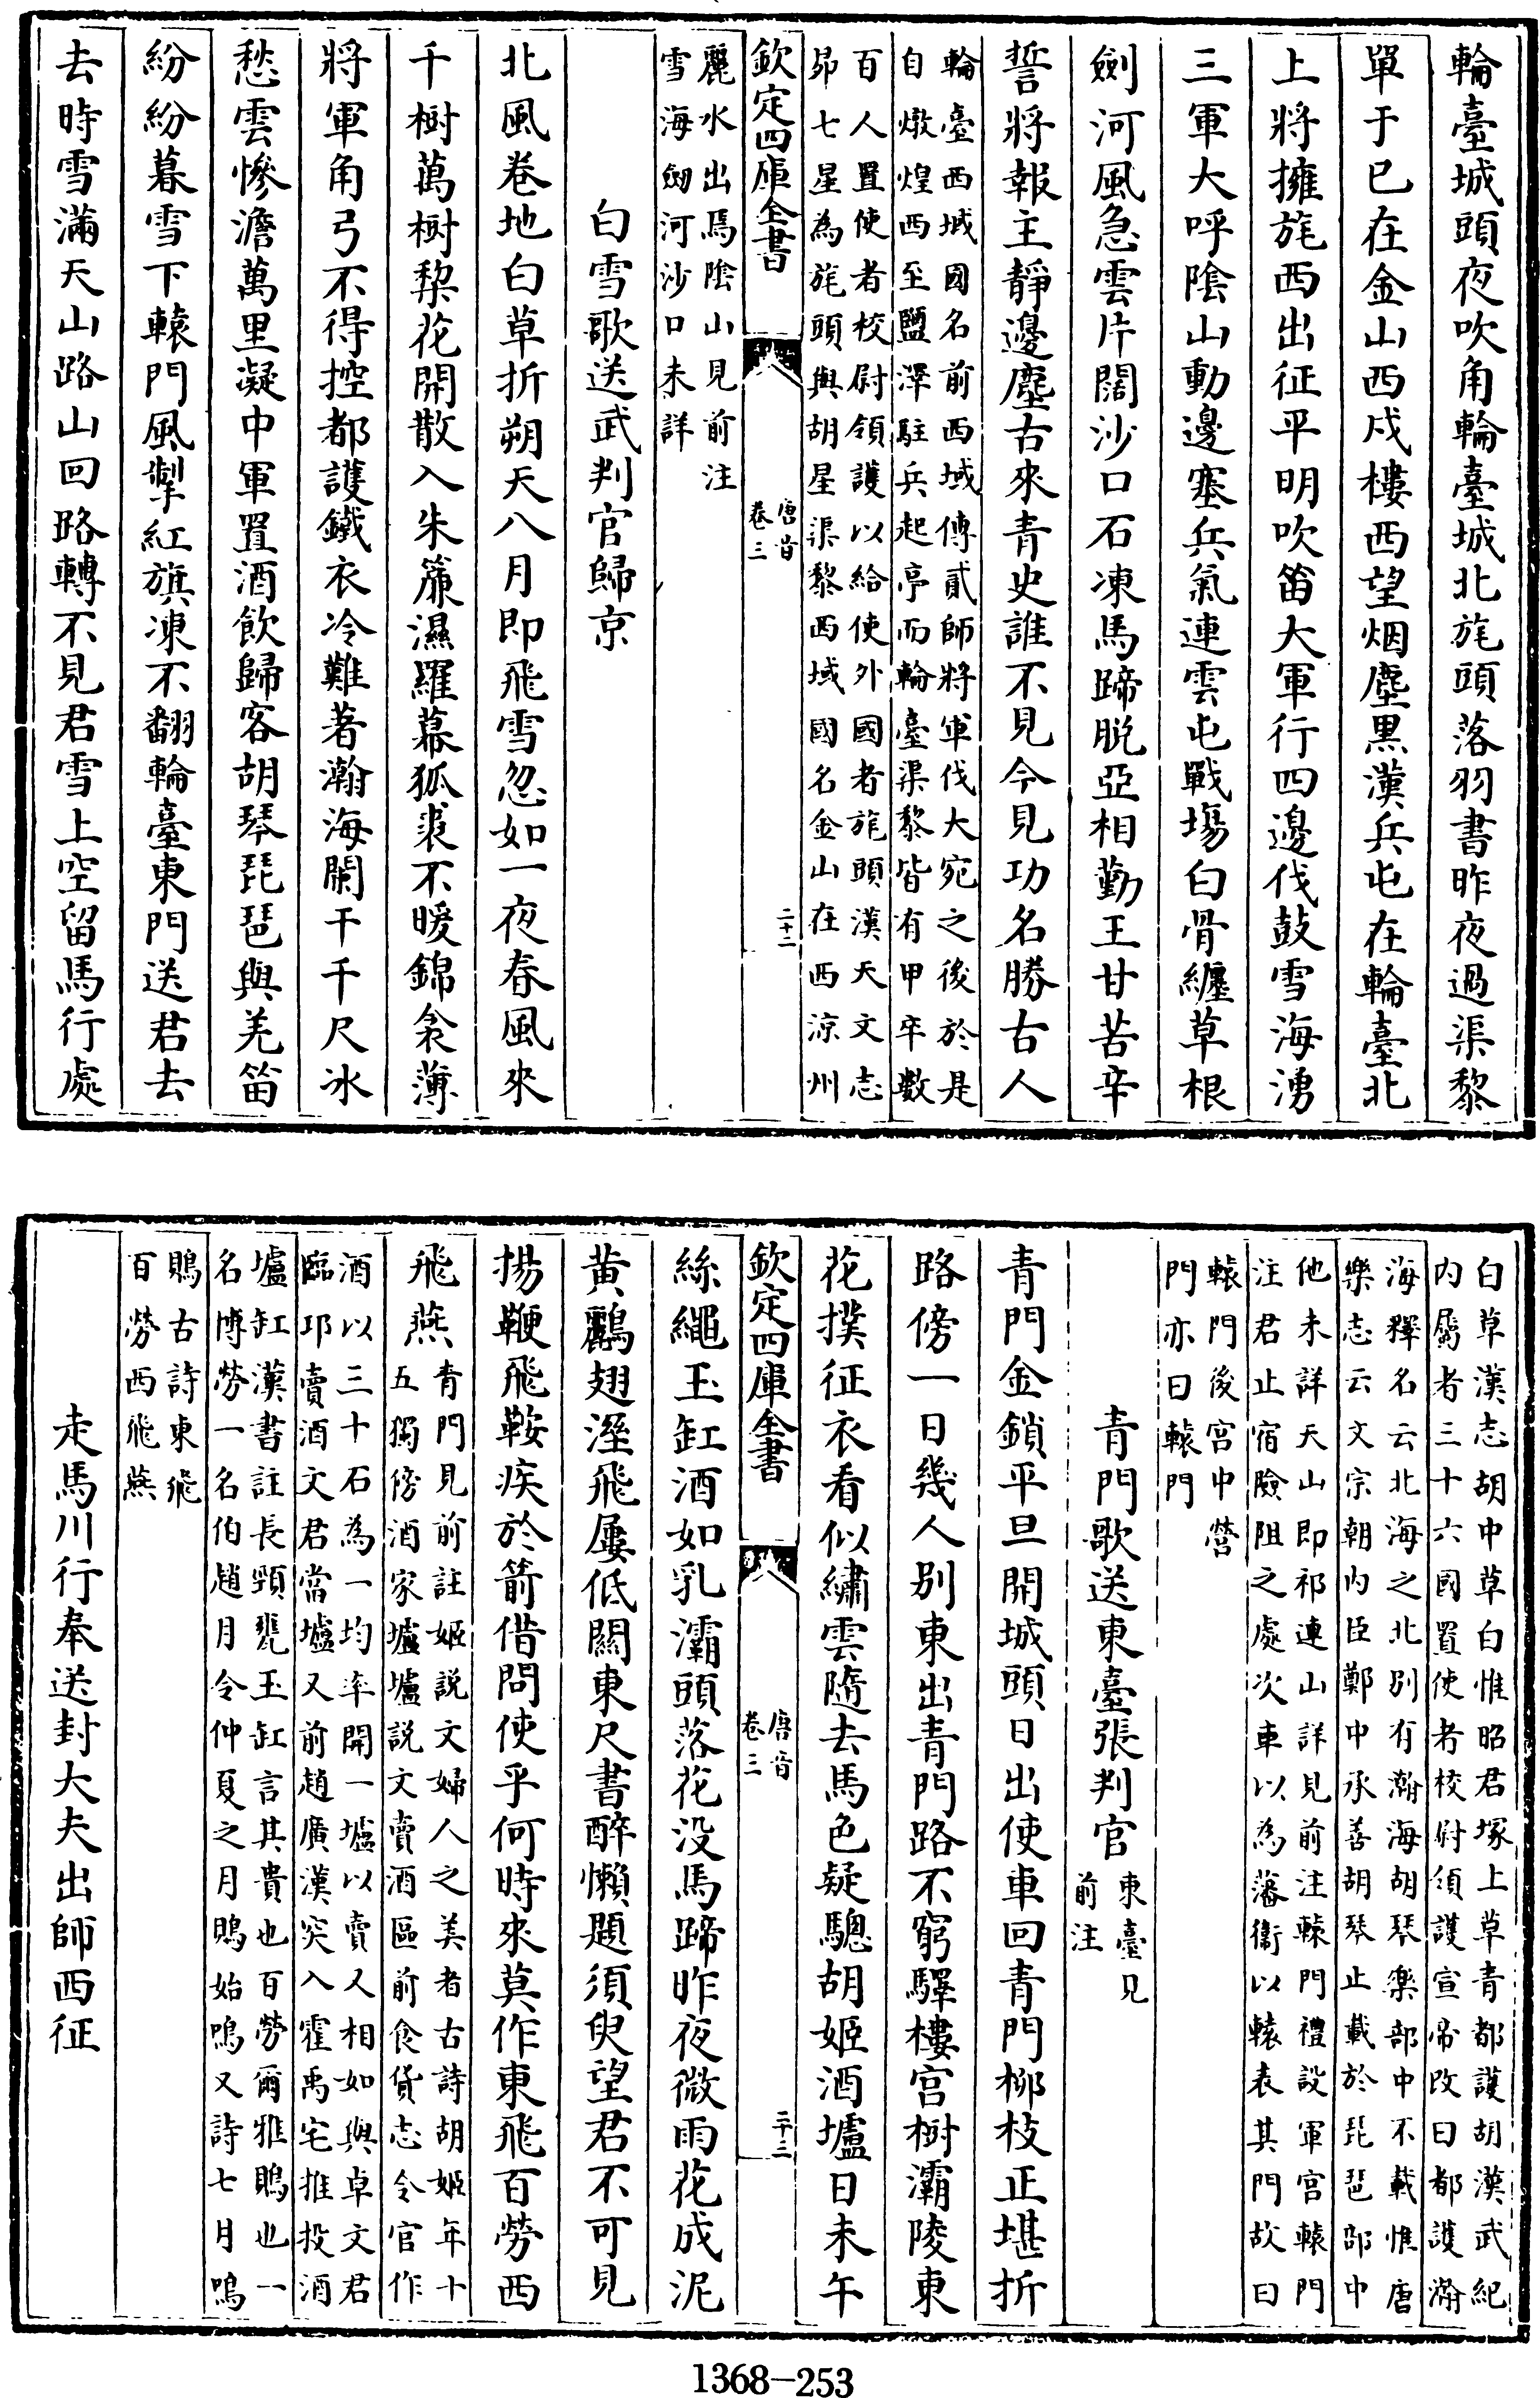 輪臺城頭夜吹角輪臺城北旄頭落羽書昨夜過渠黎
單于已在金山西戍樓西望烟塵黑漢兵屯在輪臺北
上將擁旄西出征平明吹笛大軍行四邊伐鼓雪海湧
三軍大呼陰山動邊塞兵氣連雲屯戰塲白骨纏草根
劍河風急雲片闊沙口石凍馬蹄脫亞相勤王甘苦辛
誓將報主靜邊塵古來青史誰不見今見功名勝古人
輪臺西域國名前西域傳貳師將軍伐大宛之後於是
自燉煌西至鹽澤駐兵起亭而輪臺渠黎皆有甲卒數
百人置使者校尉領護以給使外國者旄頭漢天文志
昴七星為旄頭與胡星渠黎西域國名金山在西涼州
欽定四庫全書
唐音
卷三
二十二
麗水出焉陰山見前注
雪海劒河沙口未詳
白雪歌送武判官歸京
北風卷地白草折朔天八月即飛雪忽如一夜春風來
千樹萬樹棃花開散入朱簾濕羅幕狐裘不暖錦衾薄
將軍角弓不得控都護鐵衣冷難著瀚海闌干千尺冰
愁雲慘澹萬里凝中軍置酒飲歸客胡琴琵琶與羌笛
紛紛暮雪下轅門風掣紅旗凍不翻輪臺東門送君去
去時雪滿天山路山回路轉不見君雪上空留馬行處
白草漢志胡中草白惟昭君塚上草青都護胡漢武紀
内屬者三十六國置使者校尉領護宣帝改曰都護瀚
海釋名云北海之北别有瀚海胡琴樂部中不載惟唐
樂志云文宗朝内臣鄭中承善胡琴止載於琵琶部中
他未詳天山即祁連山詳見前注轅門禮設軍宫轅門
注君止宿險阻之處次車以為藩衞以轅表其門故曰
轅門後宫中營
門亦曰轅門
青門歌送東臺張判官
東臺見
前注
青門金鎖平旦開城頭日出使車回青門栁枝正堪折
路傍一日幾人别東出青門路不窮驛樓宫樹灞陵東
花撲征衣看似繡雲隨去馬色疑驄胡姬酒壚日未午
欽定四庫全書
唐音
卷三
二十三
絲繩玉缸酒如乳灞頭落花没馬蹄昨夜微雨花成泥
黄鸝翅溼飛屢低關東尺書醉懶題須臾望君不可見
揚鞭飛鞍疾於箭借問使乎何時來莫作東飛百勞西
飛燕
青門見前註姬説文婦人之美者古詩胡姬年十
五獨傍酒家壚壚説文賣酒區前食貨志令官作
酒以三十石為一均率開一壚以賣又相如與卓文君
臨邛賣酒文君當壚又前趙廣漢突入霍禹宅推投酒
壚缸漢書註長頸甖玉缸言其貴也百勞爾雅鵙也一
名博勞一名伯趙月令仲夏之月鵙始鳴又詩七月鳴
鵙古詩東飛
百勞西飛燕
走馬川行奉送封大夫出師西征
1368—253